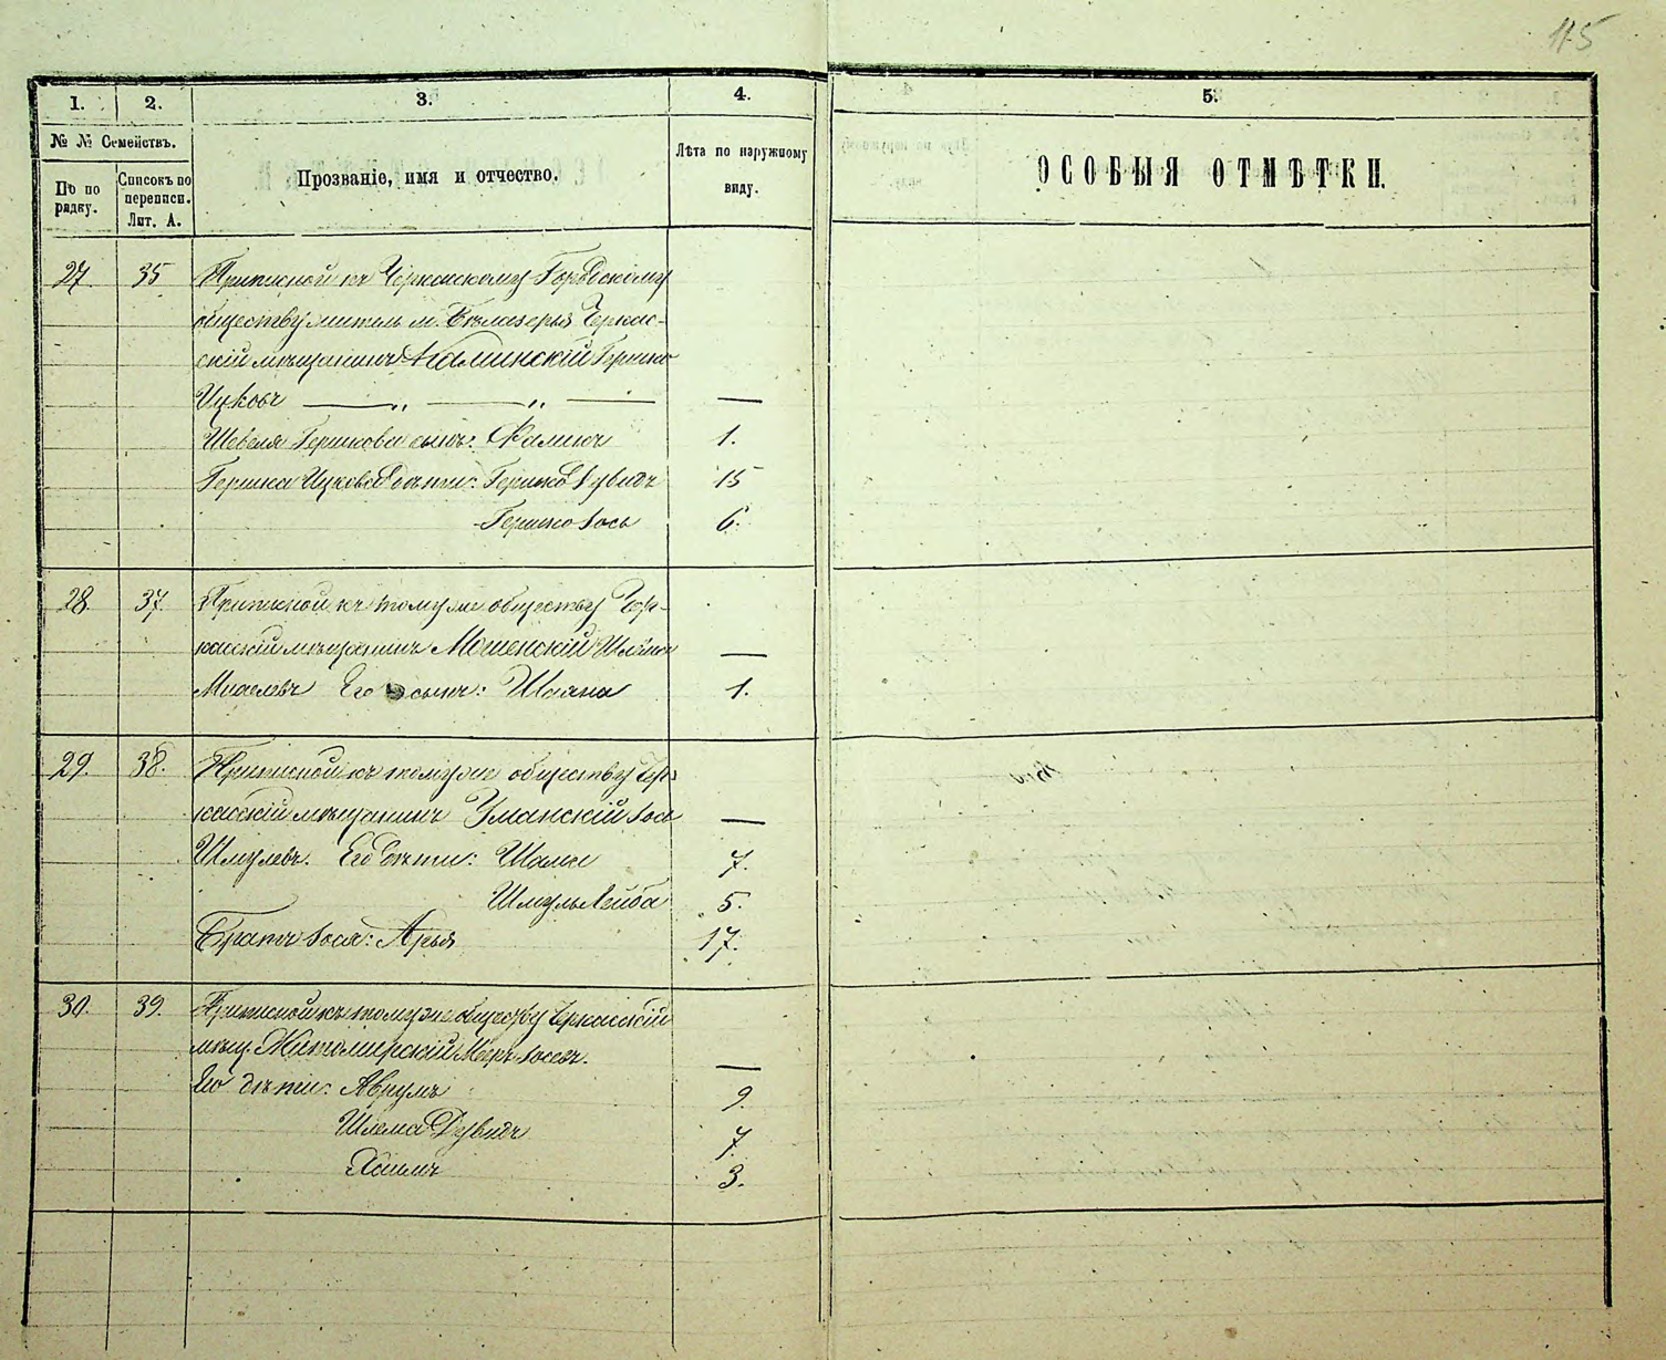 115
1.
2.
3.
4.
5.
№ № Семействъ.
По по
рядку.
Списокъ по
переписи.
Лит. А.
Прозваніе, имя и отчество.
Лѣта по наружному
виду.
ОСОБЫЯ ОТМѢТКИ.
27. 35 Приписной къ Черкасскому Городскому
обществу житель м. Бѣлозерья Черкас-
скій мѣщанинъ Калинскій Гершко
Ицковъ — „ — „ — —
Шевеля Гершкова сынъ: Фаликъ 1.
Гершка Ицкова дѣти: Гершко Дувидъ 15
Гершко Іось 6.
28. 37. Приписной къ томуже обществу Чер-
касскій мѣщанинъ Мошенскій Шлёма
—
Его сынъ: Шаяна 1.
29. 38. Приписной къ томуже обществу Чер-
касскій мѣщанинъ Уманскій Іось —
Шмулевъ. Его дѣти: Шама 7.
Шмуль Лейба 5.
Братъ Іося: Арья 17.
30. 39. Приписной къ томуже обществу Черкасскій
мѣщ. Житомирскій Меръ Іосевъ. —
Его дѣти: Аврумъ 9.
Шлема Дувидъ 7.
Хаимъ 3.